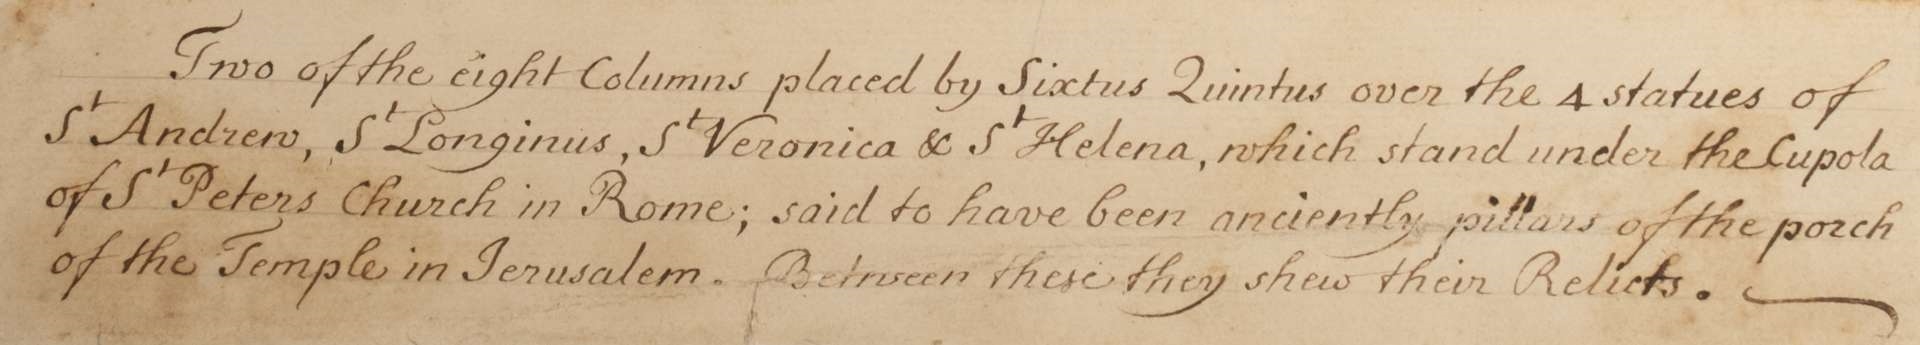 Two of the eight Columns placed by Sixtus Quintus over the 4 statues of
St Andrew, St Longinus, St Veronica & St Helena, which stand under the Cupola
of St Peters Church in Rome; said to have been anciently pillars of the porch
of the Temple in Jerusalem. Between these they shew their Relicts.